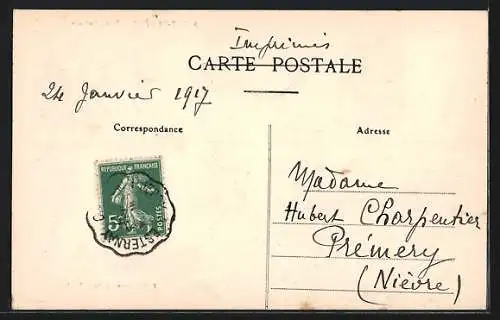 Imprimés
CARTE POSTALE
24 Janvier 1917
Correspondance
Adresse
REPUBLIQUE FRANÇAISE
5c
POSTES
STERNAY
Madame
Hubert Charpentier
Prémery
(Nièvre)